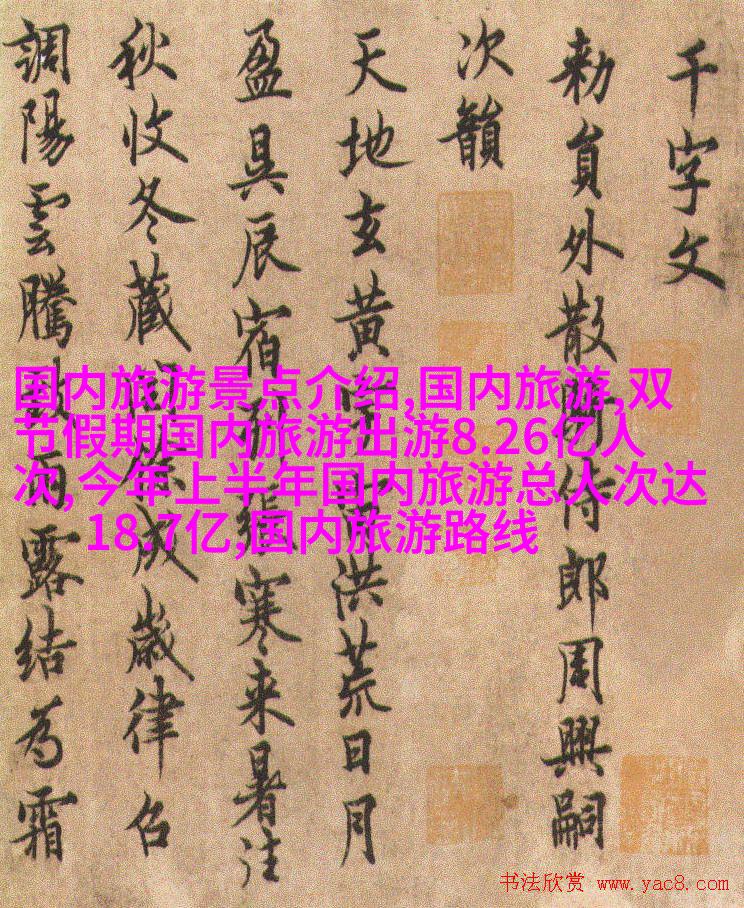 千字文
勑員外散騎侍郎周興嗣
次韻
天地玄黄宇宙洪荒日月
盈昃辰宿列張寒来暑往
秋收冬藏閏餘成歲律召
調陽雲騰致雨露結為霜
国内旅游景点介绍,国内旅游,双
节假期国内旅游出游8.26亿人
次,今年上半年国内旅游总人次达
18.7亿,国内旅游路线
书法欣赏 www.yac8.com